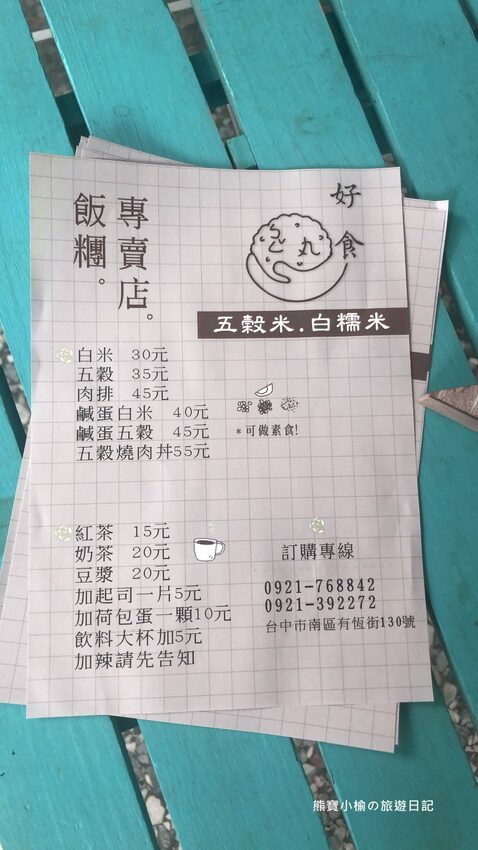 專賣店。
飯糰。
好食
包丸
五穀米.白糯米
白米 30元
五穀 35元
肉排 45元
鹹蛋白米 40元
鹹蛋五穀 45元
五穀燒肉丼55元
*可做素食!
紅茶 15元
奶茶 20元
豆漿 20元
加起司一片5元
加荷包蛋一顆10元
飲料大杯加5元
加辣請先告知
訂購專線
0921-768842
0921-392272
台中市南區有恆街130號
熊寶小榆の旅遊日記